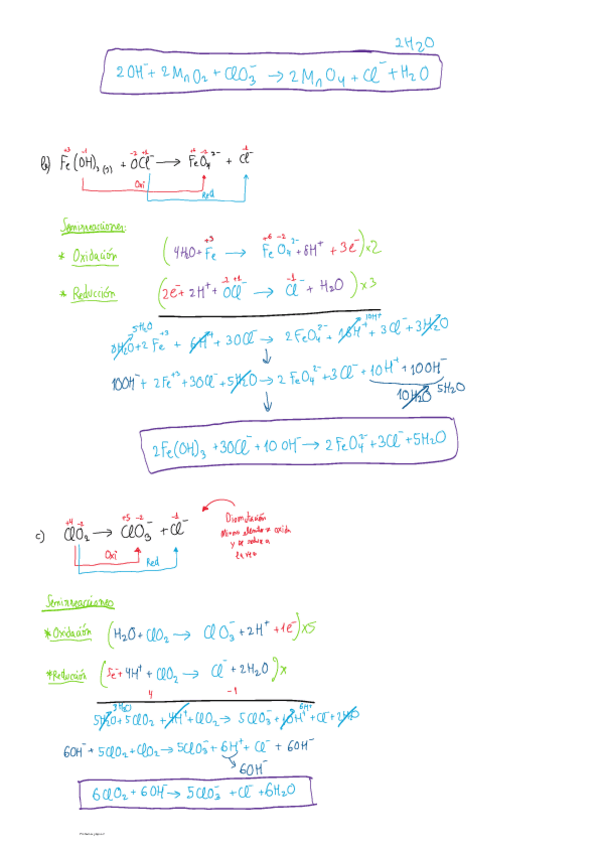 2H₂O
2OH⁻ + 2MnO₂ + ClO₃⁻ → 2MnO₄ + Cl⁻ + H₂O
+3 -1 -2 +1 -2 -1
b) Fe(OH)₃ (s) + OCl⁻ → FeO₄²⁻ + Cl⁻
Oxi
Red
Semirreacciones:
+3 +6 -2
* Oxidación (4H₂O + Fe → FeO₄²⁻ + 8H⁺ + 3e⁻) x2
-2 +1 -1
* Reducción (2e⁻ + 2H⁺ + OCl⁻ → Cl⁻ + H₂O) x3
5H₂O 10H⁺
8H₂O + 2Fe⁺³ + 6H⁺ + 3OCl⁻ → 2FeO₄²⁻ + 16H⁺ + 3Cl⁻ + 3H₂O
10OH⁻ + 2Fe⁺³ + 3OCl⁻ + 5H₂O → 2FeO₄²⁻ + 3Cl⁻ + 10H⁺ + 10OH⁻
10H₂O 5H₂O
2Fe(OH)₃ + 3OCl⁻ + 10OH⁻ → 2FeO₄²⁻ + 3Cl⁻ + 5H₂O
+4 -2 +5 -2 -1
c) ClO₂ → ClO₃⁻ + Cl⁻
Oxi
Red
Dismutación
Mismo elemento se oxida
y se reduce a
la vez
Semirreacciones
* Oxidación (H₂O + ClO₂ → ClO₃⁻ + 2H⁺ + 1e⁻) x5
* Reducción (5e⁻ + 4H⁺ + ClO₂ → Cl⁻ + 2H₂O) x
4 -1
3H₂O 6H⁺
5H₂O + 5ClO₂ + 4H⁺ + ClO₂ → 5ClO₃⁻ + 10H⁺ + Cl⁻ + 2H₂O
6OH⁻ + 5ClO₂ + ClO₂ → 5ClO₃⁻ + 6H⁺ + Cl⁻ + 6OH⁻
6OH⁻
6ClO₂ + 6OH⁻ → 5ClO₃⁻ + Cl⁻ + 6H₂O